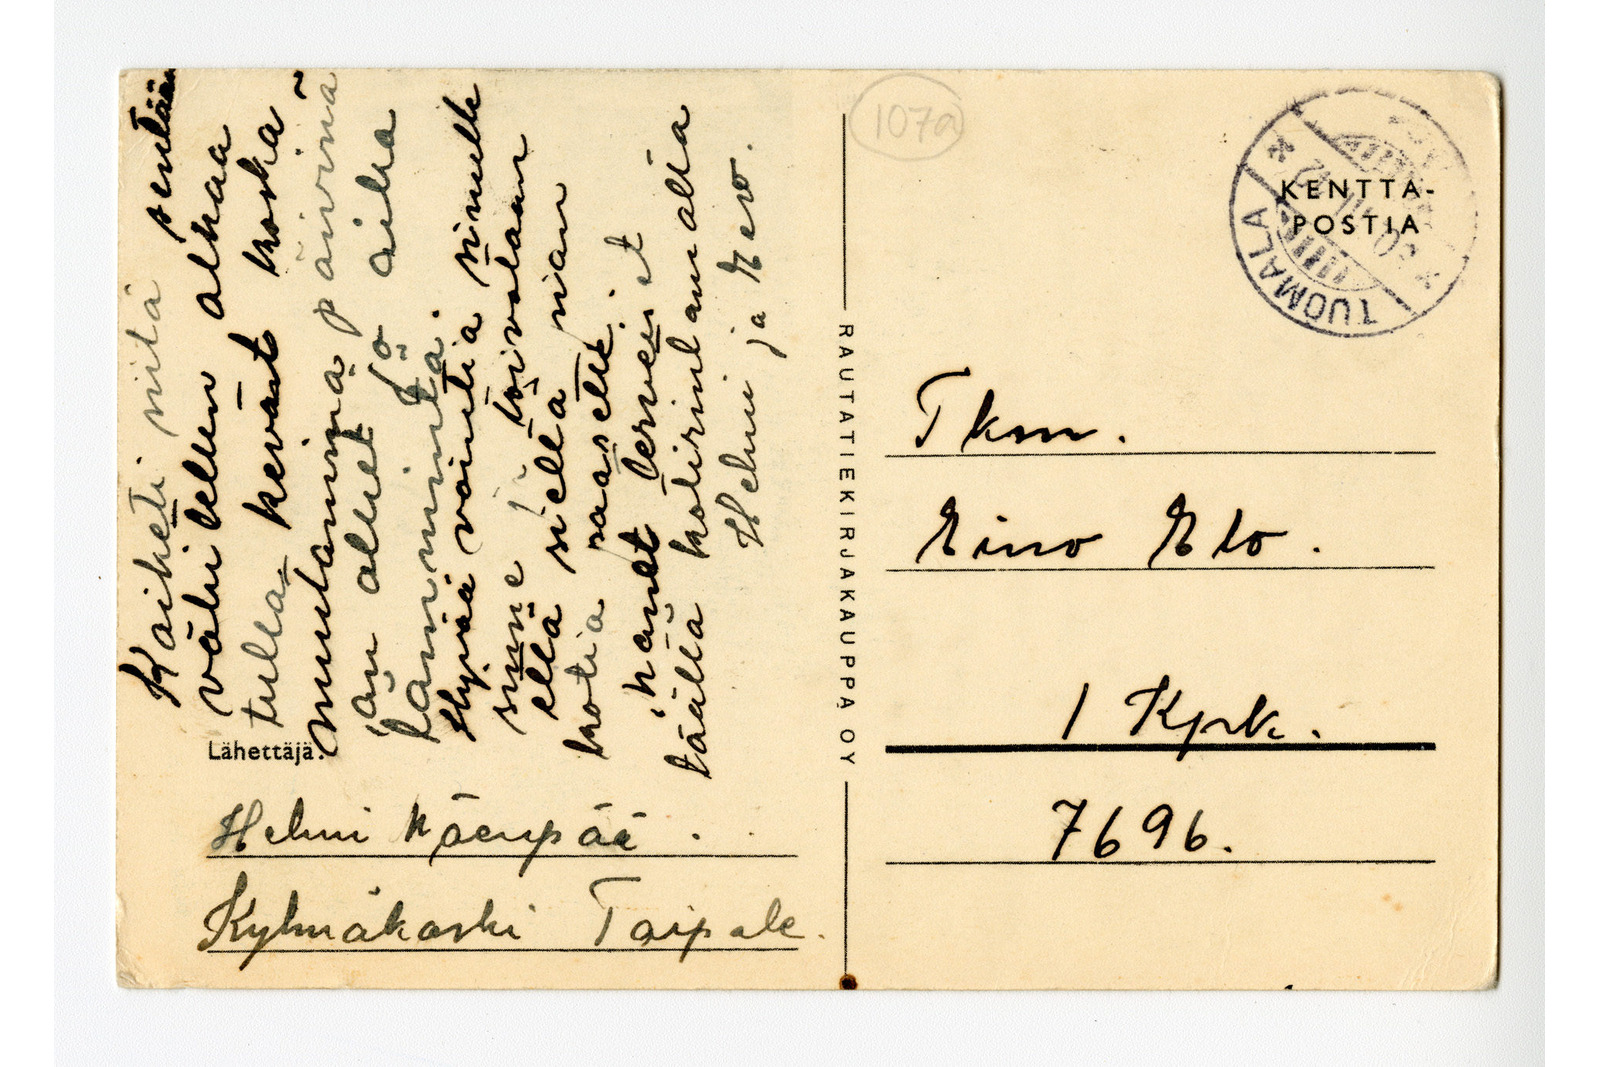 Kaiketi niitä sentään
välillen alkaa
tulla kevät koska
muutamina päivinä
on ollut jo aika
lämmintä.
Hyvää vointia sinulle
sinne toivotaan
ellä siellä vian
kotia saaselle.
hanet terveiset
täällä kotirintamalta
Helmi ja Eero.
Lähettäjä:
Helmi Käenpää.
Kylmäkoski Taipale.
RAUTATIEKIRJAKAUPPA OY
107a
KENTTÄ-
POSTIA
TUOMALA
Tkm.
Eino Elo.
1 Kprk.
7696.